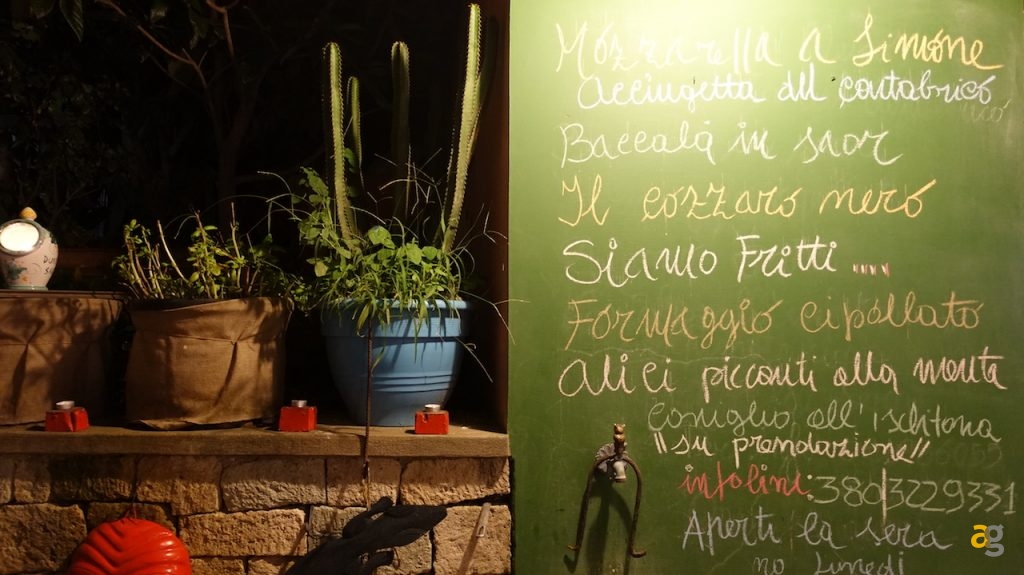 Mozzarella a Simone
Acciugetta del cantabrico
Baccalà in saor
Il cozzaro nero
Siamo Fritti ....
Formaggio cipollato
Alici piccanti alla menta
Coniglio all'ischitana
"su prendazione"
infoline:3803229331
Aperti la sera
no lunedi
ag